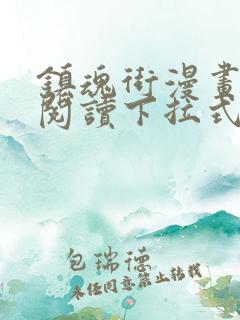 鎮魂街漫畫
閱讀下拉式
包瑞德
未經同意禁止轉載